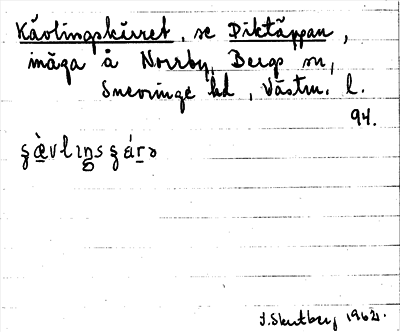 Kävlingskärret, se Diktäppan,
inäga å Norrby, Bergs sn,
Snevringe hd, Västm. l.
94.
ʂæ̀vlıŋsʂárə
J. Skutberg 1962.